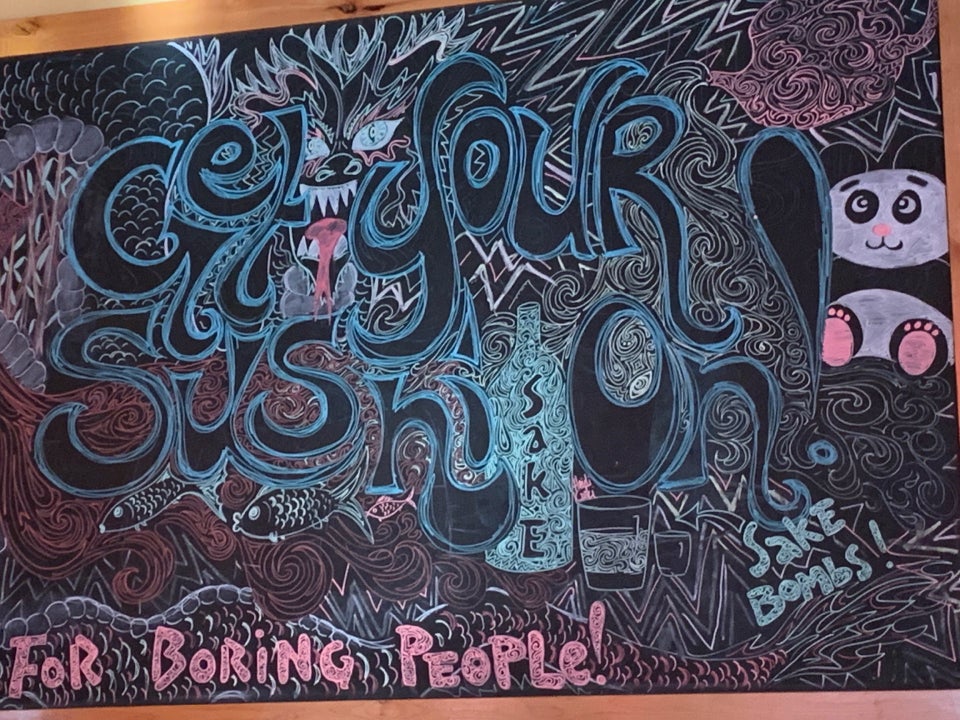 Get Your
Sushi On!
SaKE
SaKE
BOMBS!
FOR BORiNG PEOPLe!